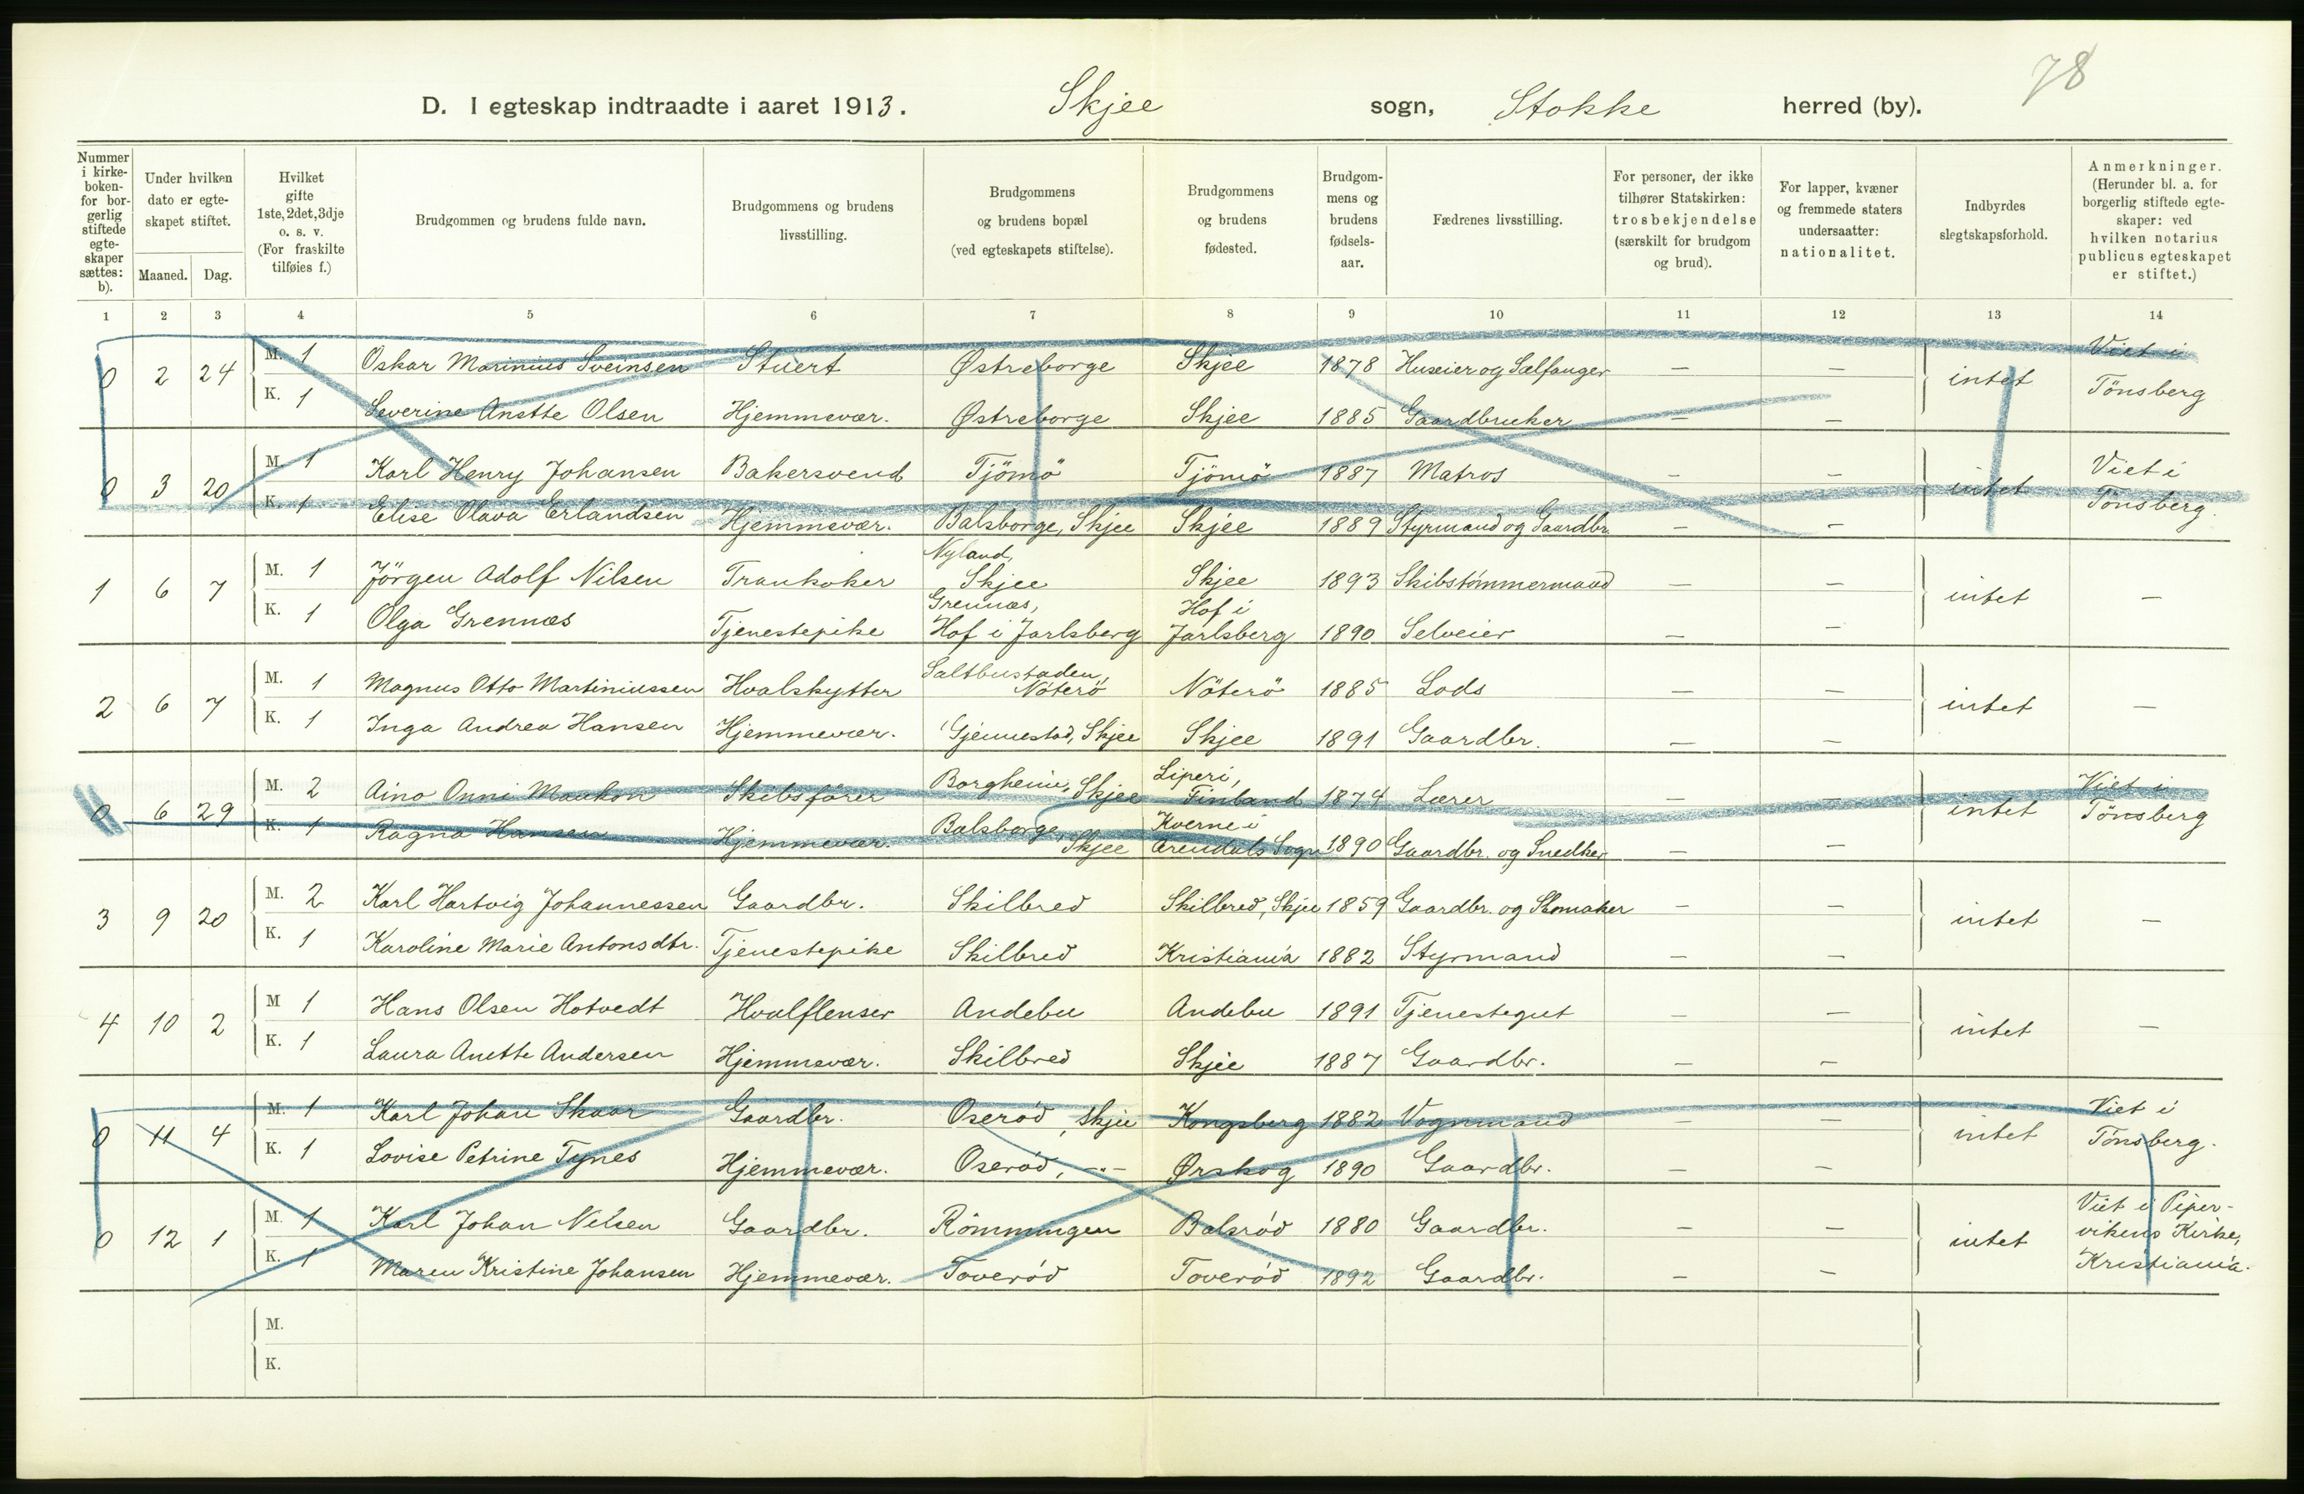 78
D. I egteskap indtraadte i aaret 1913. Skjee sogn, Stokke herred (by).
Nummer i kirke-boken- for bor-gerlig stiftede egte-skaper sættes: b).
Under hvilken dato er egte-skapet stiftet.
Maaned. Dag.
Hvilket gifte 1ste, 2det, 3dje o. s. v. (For fraskilte tilføies f.)
Brudgommen og brudens fulde navn.
Brudgommens og brudens livsstilling.
Brudgommens og brudens bopæl (ved egteskapets stiftelse).
Brudgommens og brudens fødested.
Brudgom-mens og brudens fødsels-aar.
Fædrenes livsstilling.
For personer, der ikke tilhører Statskirken: trosbekjendelse (særskilt for brudgom og brud).
For lapper, kvæner og fremmede staters undersaatter: nationalitet.
Indbyrdes slegtskapsforhold.
Anmerkninger. (Herunder bl. a. for borgerlig stiftede egte-skaper: ved hvilken notarius publicus egteskapet er stiftet.)
1 2 3 4 5 6 7 8 9 10 11 12 13 14
0 2 24 M. 1 Oskar Marinius Sveinsen Stuert Østreborge Skjee 1878 Huseier og Sælfanger — — intet Viet i Tönsberg
K. 1 Severine Anette Olsen Hjemmevær. Østreborge Skjee 1885 Gaardbruker — —
0 3 20 M. 1 Karl Henry Johansen Bakersvend Tjömö Tjömö 1887 Matros — — intet Viet i Tönsberg.
K. 1 Elise Olava Erlandsen Hjemmevær. Balsborge, Skjee Skjee 1889 Styrmand og Gaardbr. — —
1 6 7 M. 1 Jörgen Adolf Nilsen Trankoker Nyland, Skjee Skjee 1893 Skibstömmermand — — intet —
K. 1 Olga Grennæs Tjenestepike Grennæs, Hof i Jarlsberg Hof i Jarlsberg 1890 Selveier — —
2 6 7 M. 1 Magnus Otto Martiniussen Hvalskytter Saltbustaden, Nöterö Nöterö 1885 Lods — — intet —
K. 1 Inga Andrea Hansen Hjemmevær. Gjennestad, Skjee Skjee 1891 Gaardbr. — —
0 6 29 M. 2 Aino Onni Maukon Skibsfører Borgheim, Skjee Liperi, Finland 1874 Lærer — — intet Viet i Tönsberg
K. 1 Ragna Hansen Hjemmevær. Balsborge, Skjee Kverne i Arendals Sogn 1890 Gaardbr. og Snedker — —
3 9 20 M. 2 Karl Hartvig Johannessen Gaardbr. Skilbred Skilbred, Skjee 1859 Gaardbr. og Skomaker — — intet —
K. 1 Karoline Marie Antonsdtr. Tjenestepike Skilbred Kristiania 1882 Styrmand — —
4 10 2 M 1 Hans Olsen Hotvedt Hvalflenser Andebu Andebu 1891 Tjenestegut — — intet —
K. 1 Laura Anette Andersen Hjemmevær. Skilbred Skjee 1887 Gaardbr. — —
0 11 4 M. 1 Karl Johan Skaar Gaardbr. Oserød, Skjee Kongsberg 1882 Vognmand — — intet Viet i Tönsberg.
K. 1 Lovise Petrine Tynes Hjemmevær. Oserød, —"— Ørskog 1890 Gaardbr. — —
0 12 1 M. 1 Karl Johan Nilsen Gaardbr. Römmingen Balsrød 1880 Gaardbr. — — intet Viet i Piper-vikens Kirke, Kristiania.
K. 1 Maren Kristine Johansen Hjemmevær. Toverød Toverød 1892 Gaardbr. — —
M.
K.